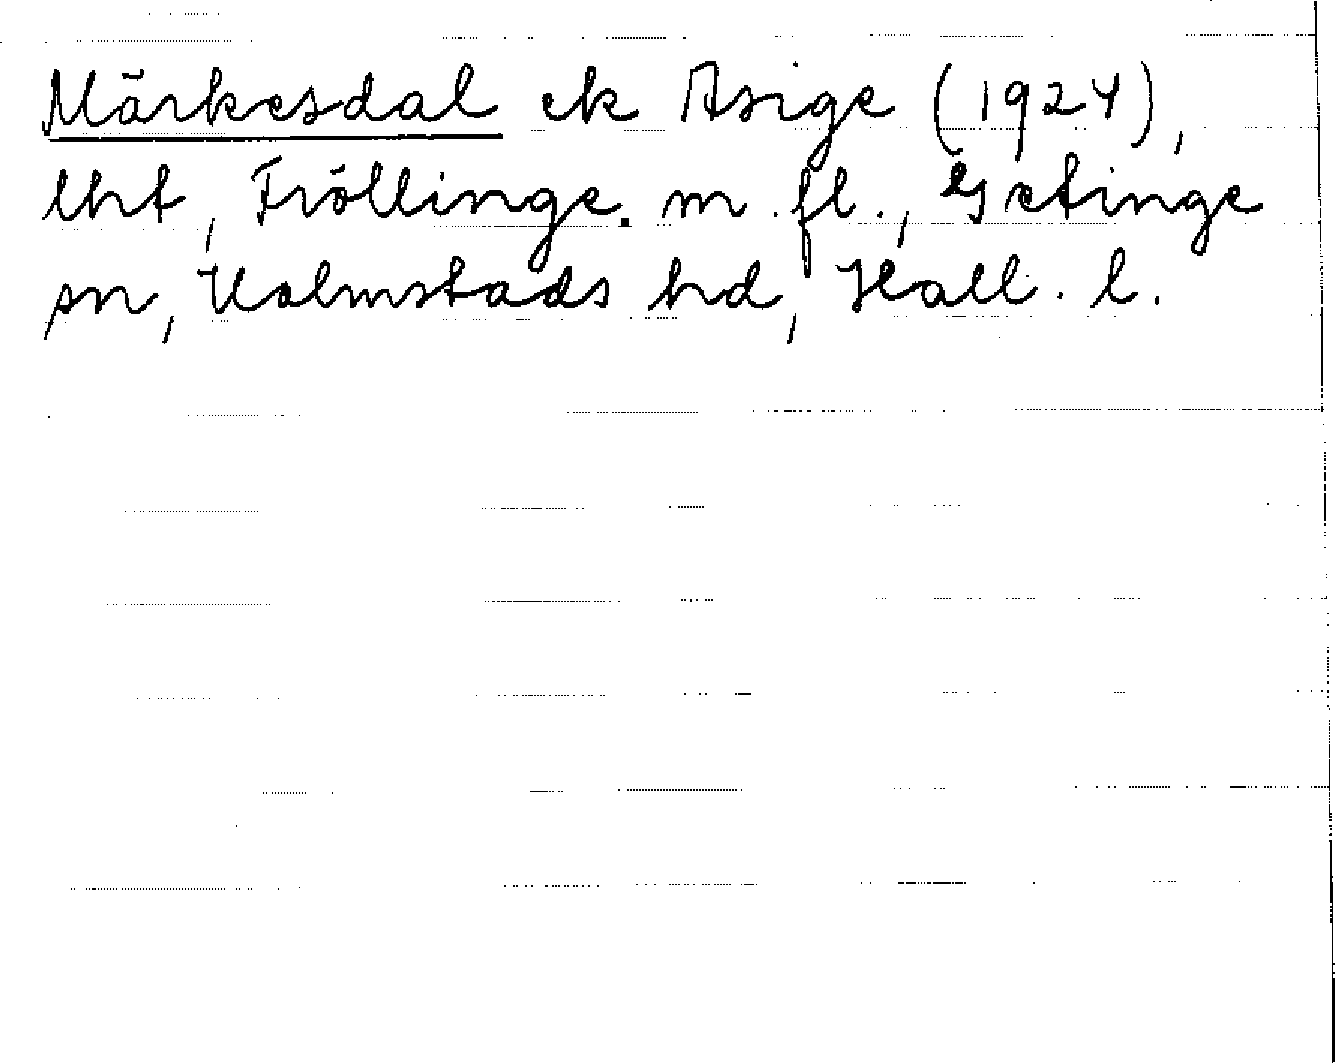 Märkesdal ek Asige (1924),
lht, Fröllinge. m. fl., Getinge
sn, Halmstads hd, Hall. l.